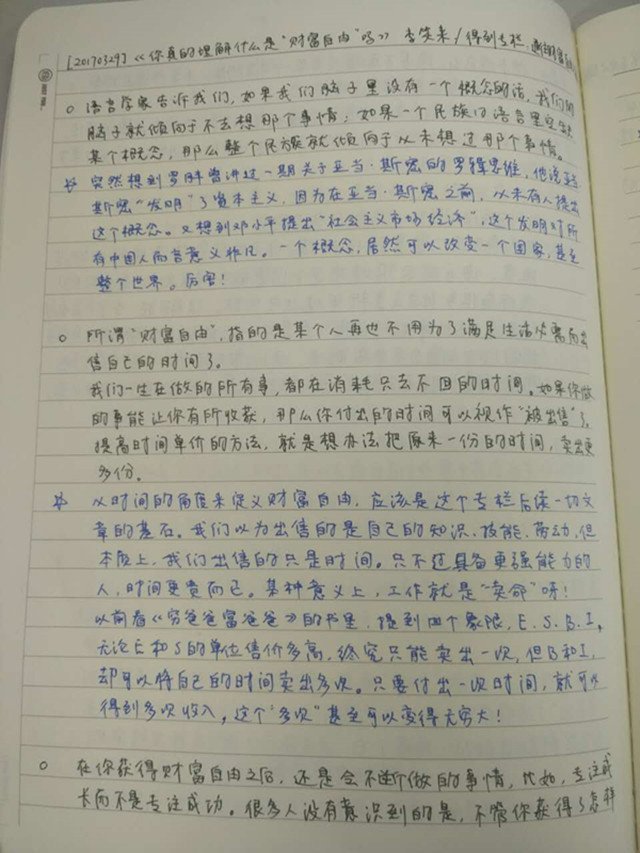 [20170329]《你真的理解什么是“财富自由”吗》 李笑来/得到专栏·通往财富自由
○ 语言学家告诉我们，如果我们脑子里没有一个概念的话，我们的
脑子就倾向于不去想那个事情；如果一个民族的语言里完全没
某个概念，那么整个民族就倾向于从未想过那个事情。
☆ 突然想到罗胖曾讲过一期关于亚当·斯密的罗辑思维，他说亚当
斯密“发明”了资本主义，因为在亚当·斯密之前，从未有人提出
这个概念。又想到邓小平提出“社会主义市场经济”，这个发明对所
有中国人而言意义非凡。一个概念，居然可以改变一个国家，甚至
整个世界。厉害！
○ 所谓“财富自由”，指的是某个人再也不用为了满足生活必需而出
售自己的时间了。
我们一生在做的所有事，都在消耗只去不回的时间。如果你做
的事能让你有所收获，那么你付出的时间可以视作“被出售”了。
提高时间单价的方法，就是想办法把原来一份的时间，卖出更
多份。
☆ 从时间的角度来定义财富自由，应该是这个专栏后续一切文
章的基石。我们以为出售的是自己的知识、技能、劳动，但
本质上，我们出售的只是时间。只不过具备更强能力的
人，时间更贵而已。某种意义上，工作就是“卖命”呀！
以前看《穷爸爸富爸爸》的书里，提到四个象限，E、S、B、I，
无论E和S的单位售价多高，终究只能卖出一次，但B和I，
却可以将自己的时间卖出多次。只要付出一次时间，就可以
得到多次收入，这个“多次”甚至可以变得无穷大！
○ 在你获得财富自由之后，还是会不断做的事情，比如，专注成
长而不是专注成功。很多人没有意识到的是，不管你获得了怎样